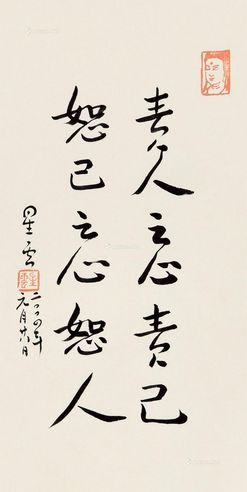 責人之心責己
恕己之心恕人
星云
星雲
二〇〇四年
元月 日